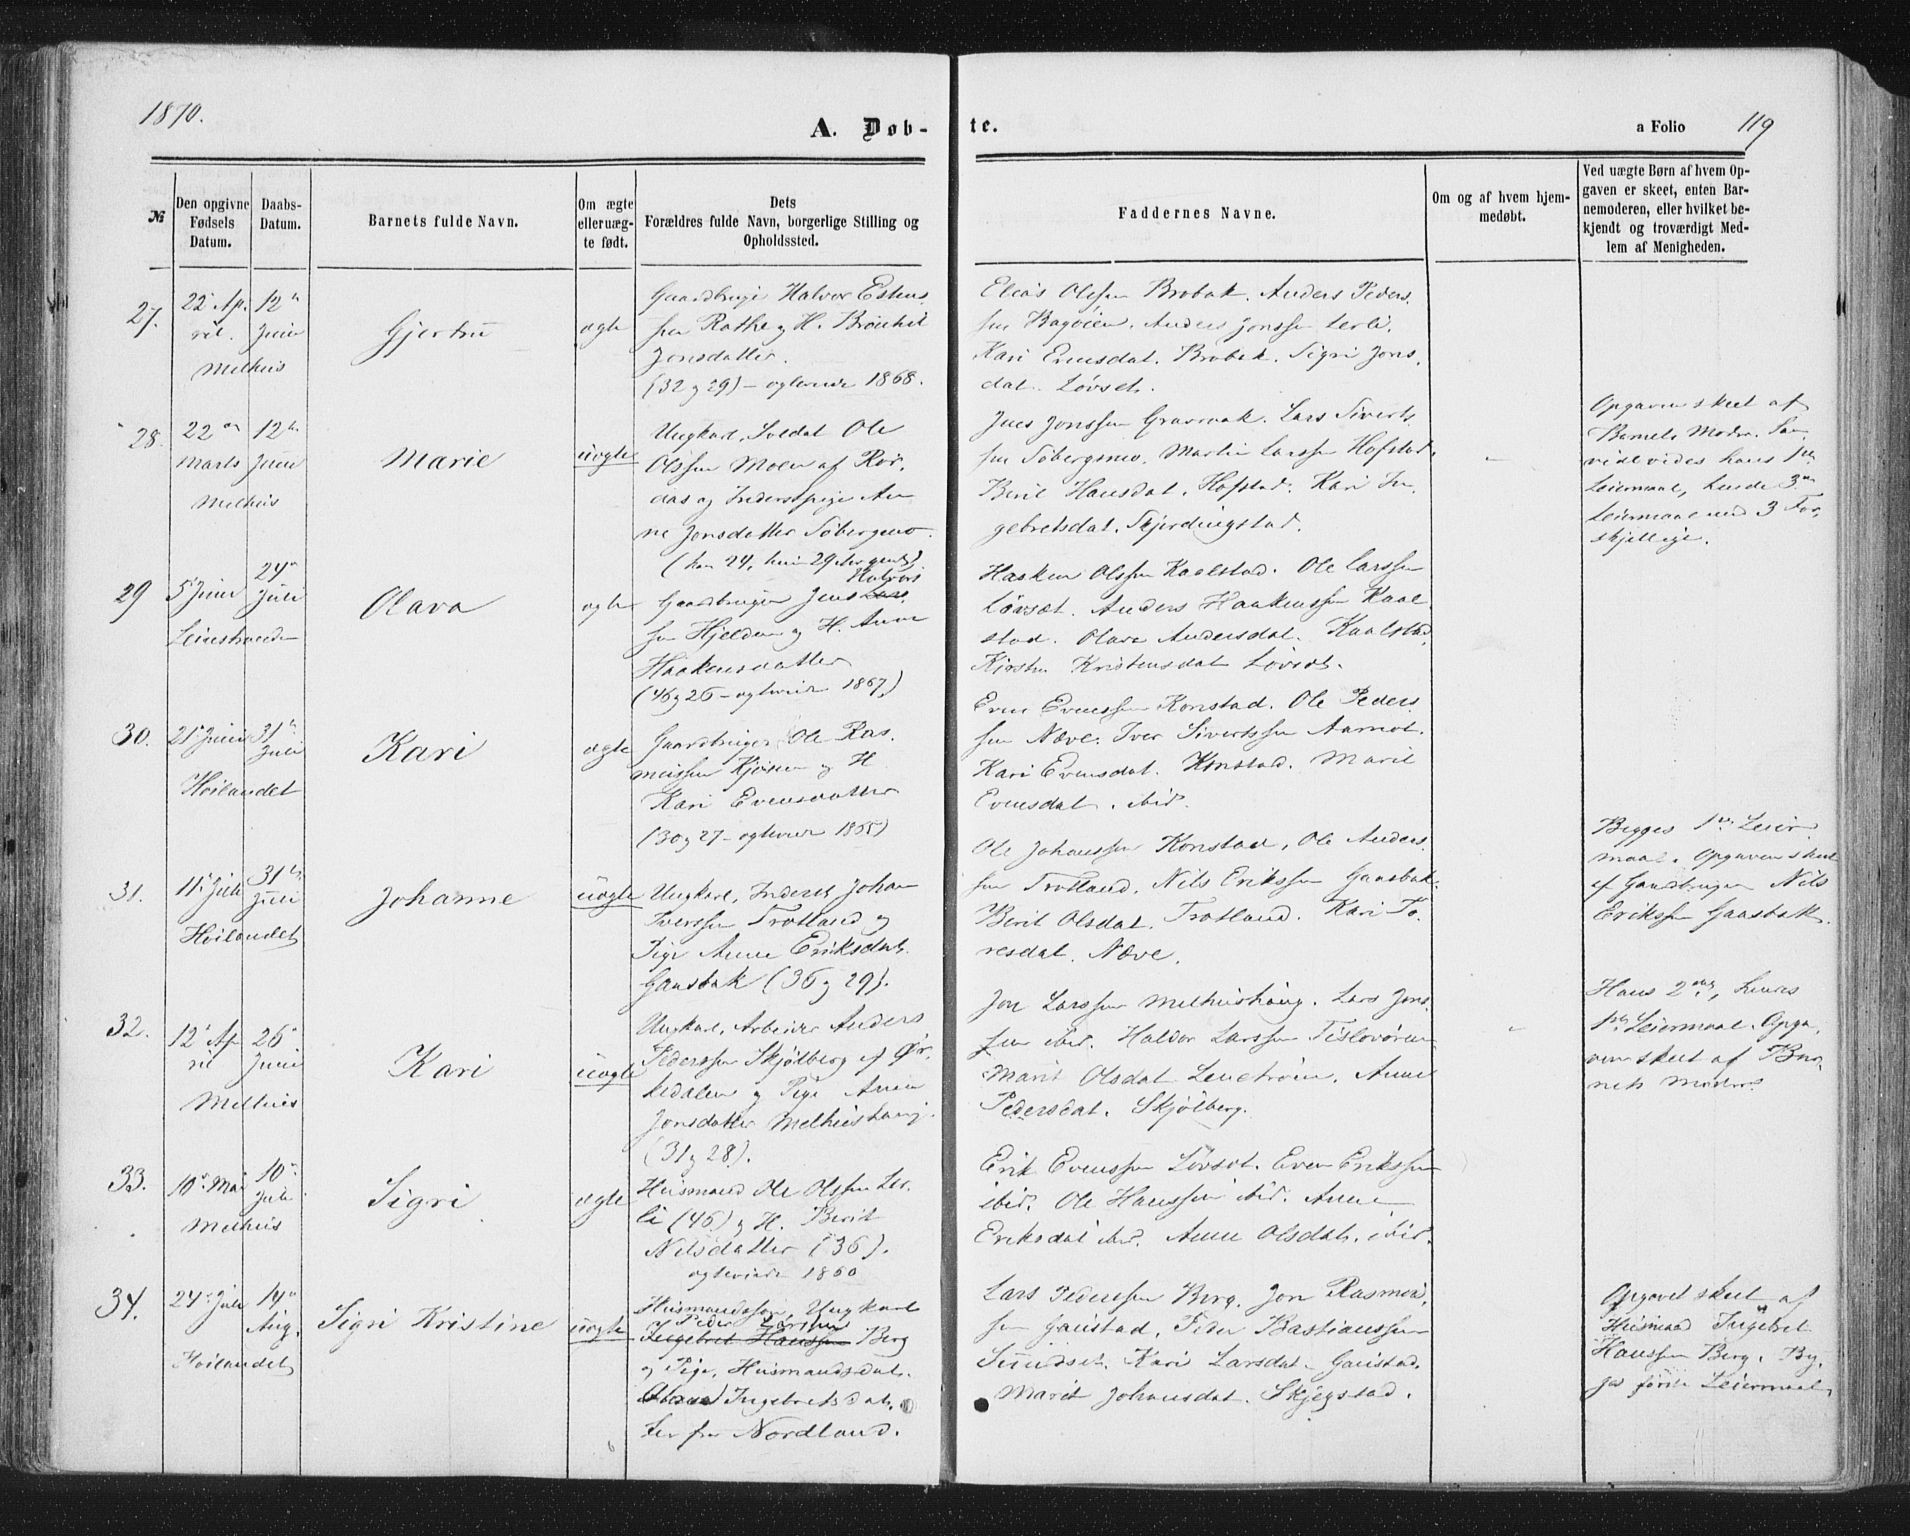 1870.
A. Døb-
te.
a Folio 119
№
Den opgivne
Fødsels
Datum.
Daabs-
Datum.
Barnets fulde Navn.
Om ægte
eller uæg-
te født.
Dets
Forældres fulde Navn, borgerlige Stilling og
Opholdssted.
Faddernes Navne.
Om og af hvem hjem-
medøbt.
Ved uægte Børn af hvem Op-
gaven er skeet, enten Bar-
nemoderen, eller hvilket be-
kjendt og troværdigt Med-
lem af Menigheden.
27.
22 Ap-
ril.
Melhus
12
Juni
Gjertru
ægte
Gaardbruger Halvor Estens
sen Rathe og H.
Jonsdatter.
(32 og 29) - 1868.
Elias Olsen Brobak. Anders Peders
sen Bagøien. Anders Jonssen Lerli.
Kari Evensdat. Brobak. Sigri Jons
dat. Løvset.
28.
22
Marts
Melhus
12
Juni
Marie
uægte
Ungkarl, Soldat Ole
Olssen Moen af Rør
das og Inderstpige An
ne Jonsdatter Søbergmo.
(han 24, hun 29
Jonssen Gravraak. Lars Siverts
sen Søbergsmo. Martin Larssen Hofstad.
Berit Hansdat. Hofstad. Kari In
gebretsdat. Skjerdingstad.
Opgaven skeet af
Barnets Moder. Saa
vidt vides hans 1ste
Leiermaal, hendes 3die
Leiermaal med 3 For
skjellige.
29
5 Juni
Leinstranden
24
Juli
Olava
ægte
Halvors
Gaardbruger Jens Lars
sen Hjelden og H. Anne
Haakensdatter
(46 og 26 - 1867)
Haaken Olssen Kaalstad. Ole Larssen
Løvset. Anders Haakenssen Kaal
stad. Olava Andersdat. Kaalstad.
Kristensdat Løvset.
30.
21 Juni
Høilandet
31
Juli
Kari
ægte
Gaardbruger Ole Ras
mussen Kjøsen og H.
Kari Evensdatter
(30 og 27 - 1865)
Even Evenssen Konstad. Ole Peders
sen Næve. Iver Sivertssen Aamot.
Kari Evensdat. Konstad. Marit
Evensdat. ibid.
31.
11 Juli
Høilandet
31
Juli
Johanne
uægte
Ungkarl, Inderst Johan
Iverssen Trotland og
Pige Anne Eriksdat.
Gaasbak (36 og 29).
Ole Johanssen Konstad, Ole Anders
sen Trotland. Nils Erikssen Gaasbak.
Berit Olsdat. Trotland. Kari To
resdat. Næve.
Begges 1ste Leier
maal. Opgaven skeet
af Gaardbruger Nils
Erikssen Gaasbak.
32.
12 Ap
ril
Melhus
26
Juni
Kari
uægte
Ungkarl, Arbeider Anders
Pederssen Skjølberg af Ør
kedalen og Pige Anne
Jonsdatter Melhushaug.
(31 og 28).
Jon Larssen Melhushaug. Lars Jons
sen ibid. Haldor Larssen
Marit Olsdat Anne
Pedersdat. Skjølberg.
Hans 2det, hendes
1ste Leiermaal. Opga
ven skeet af Bar
nets Moder
33.
10 Mai
Melhus
10
Juli
Sigri
ægte
Husmand Ole Olssen Ler
li (46) og H. Berit
Nilsdatter (36).
1860
Erik Evenssen Løvset. Even Erikssen
ibid. Ole Hanssen ibid. Anne
Eriksdat ibid. Anne Olsdat. ibid.
34.
24 Juli
Høilandet
14
Aug.
Sigri Kristine
uægte
Husmandssøn, Ungkarl
Peder
Ingebret Hanssen Berg
og Pige, Husmandsdat.
Ingebretsdat.
fra Nordland.
Lars Pederssen Berg. Jon Rasmus
sen Gaustad. Peder Bastianssen
Sundset. Kari Larsdat. Gaustad.
Marit Johansdat. Skjegstad.
Opgavet skeet af
Husmand Ingebret
Hanssen Berg. Beg
ges første Leiermaal